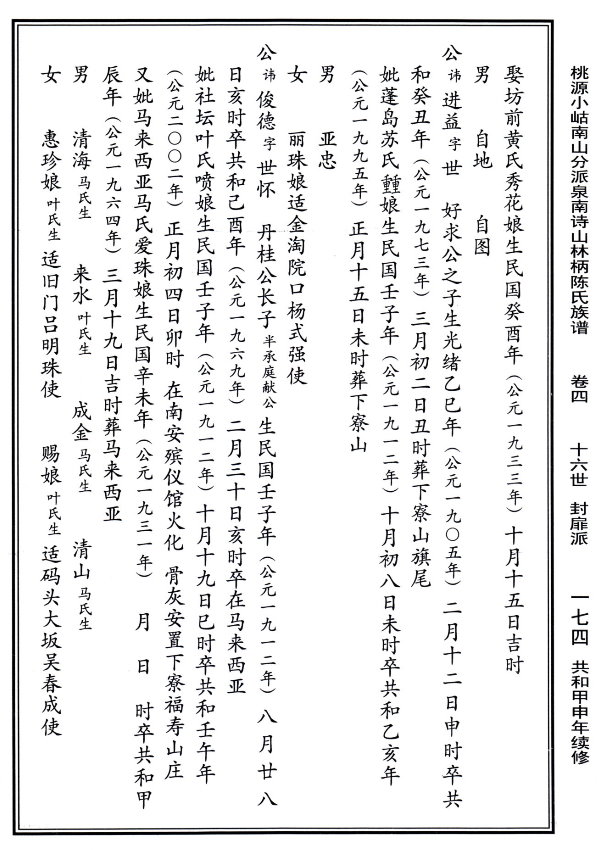 桃源小岵南山分派泉南诗山林柄陈氏族谱 卷四 十六世 封扉派 一七四 共和甲申年续修
娶坊前黄氏秀花娘生民国癸酉年（公元一九三三年）十月十五日吉时
男 自地 自图
公讳进益字世 好求公之子生光绪乙巳年（公元一九〇五年）二月十二日申时卒共
和癸丑年（公元一九七三年）三月初二日丑时葬下寮山旗尾
妣蓬岛苏氏锺娘生民国壬子年（公元一九一二年）十月初八日未时卒共和乙亥年
（公元一九九五年）正月十五日未时葬下寮山
男 亚忠
女 丽珠娘适金淘院口杨式强使
公讳俊德字世怀 丹桂公长子半承庭献公生民国壬子年（公元一九一二年）八月廿八
日亥时卒共和己酉年（公元一九六九年）二月三十日亥时卒在马来西亚
妣社坛叶氏喷娘生民国壬子年（公元一九一二年）十月十九日巳时卒共和壬午年
（公元二〇〇二年）正月初四日卯时 在南安殡仪馆火化 骨灰安置下寮福寿山庄
又妣马来西亚马氏爱珠娘生民国辛未年（公元一九三一年） 月 日 时卒共和甲
辰年（公元一九六四年）三月十九日吉时葬马来西亚
男 清海马氏生 来水叶氏生 成金马氏生 清山马氏生
女 惠珍娘叶氏生适旧门吕明珠使 赐娘叶氏生适码头大坂吴春成使